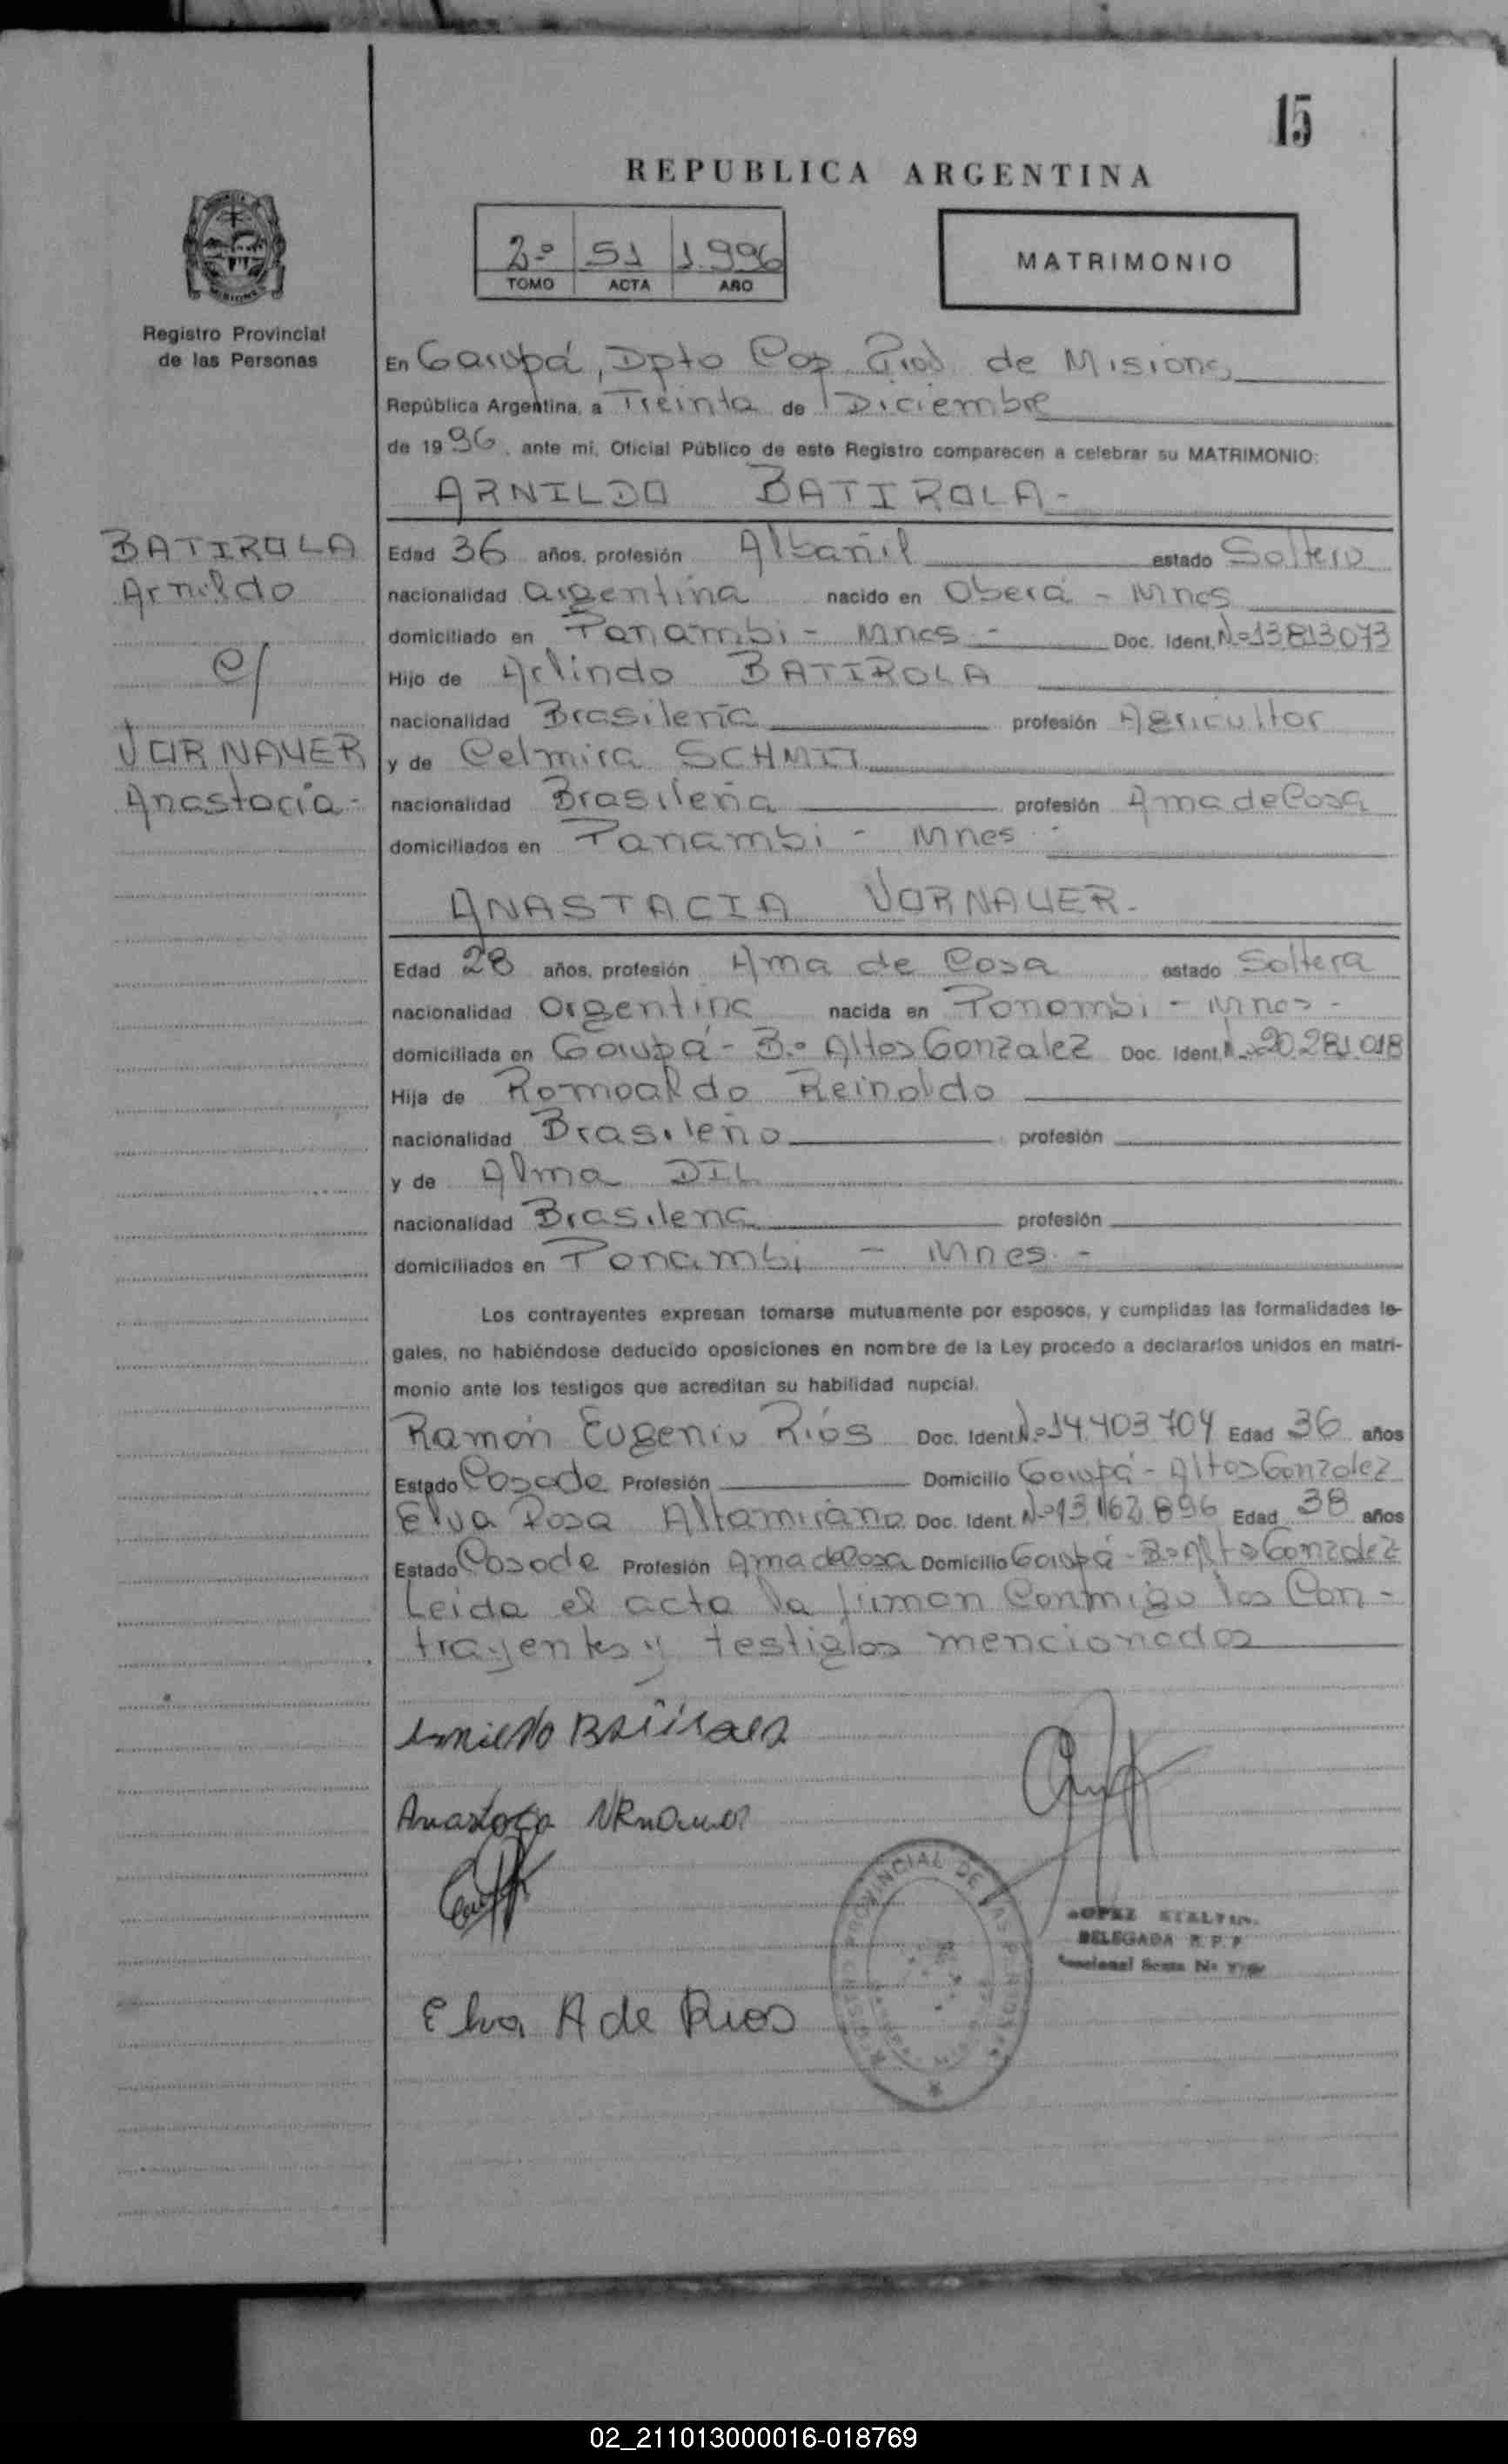 15
REPUBLICA ARGENTINA
2º 51 1.996
TOMO ACTA AÑO
MATRIMONIO
MISIONES
Registro Provincial
de las Personas
En Garupá, Dpto Cap. Prov. de Misiones
República Argentina, a Treinta de Diciembre
de 1996, ante mi, Oficial Público de este Registro comparecen a celebrar su MATRIMONIO:
ARNILDO BATIROLA-
BATIROLA
Arnildo
c/
VORNAUER
Anastacia-
Edad 36 años, profesión Albañil estado Soltero
nacionalidad argentina nacido en Oberá - Mnes
domiciliado en Panambi - Mnes - Doc. Ident. Nº 13813073
Hijo de Arlindo BATIROLA
nacionalidad Brasileña profesión Agricultor
y de Celmira SCHMIT
nacionalidad Brasileña profesión Ama de Casa
domiciliados en Panambi - Mnes -
ANASTACIA VORNAUER-
Edad 28 años, profesión Ama de Casa estado Soltera
nacionalidad argentina nacida en Panambi - Mnes -
domiciliada en Garupá - Bº Altos Gonzalez Doc. Ident. Nº 20.281.018
Hija de Romoaldo Reinoldo
nacionalidad Brasileño profesión
y de Alma DIL
nacionalidad Brasilena profesión
domiciliados en Panambi - Mnes. -
Los contrayentes expresan tomarse mutuamente por esposos, y cumplidas las formalidades le-
gales, no habiéndose deducido oposiciones en nombre de la Ley procedo a declararlos unidos en matri-
monio ante los testigos que acreditan su habilidad nupcial.
Ramón Eugenio Ríos Doc. Ident. Nº 14.403.704 Edad 36 años
Estado Casado Profesión Domicilio Garupá - Altos Gonzalez
Elva Rosa Altamirano Doc. Ident. Nº 13.162.896 Edad 38 años
Estado Casada Profesión Ama de Casa Domicilio Garupá - Bº Alto Gonzalez
Leida el acta la firman conmigo los Con-
trayentes y testigos mencionados
Arnildo Batirola
Anastacia
PROVINCIAL DE LAS PERSONAS
LOPEZ
DELEGADA R. P. P.
Elva A de Rios
02_211013000016-018769